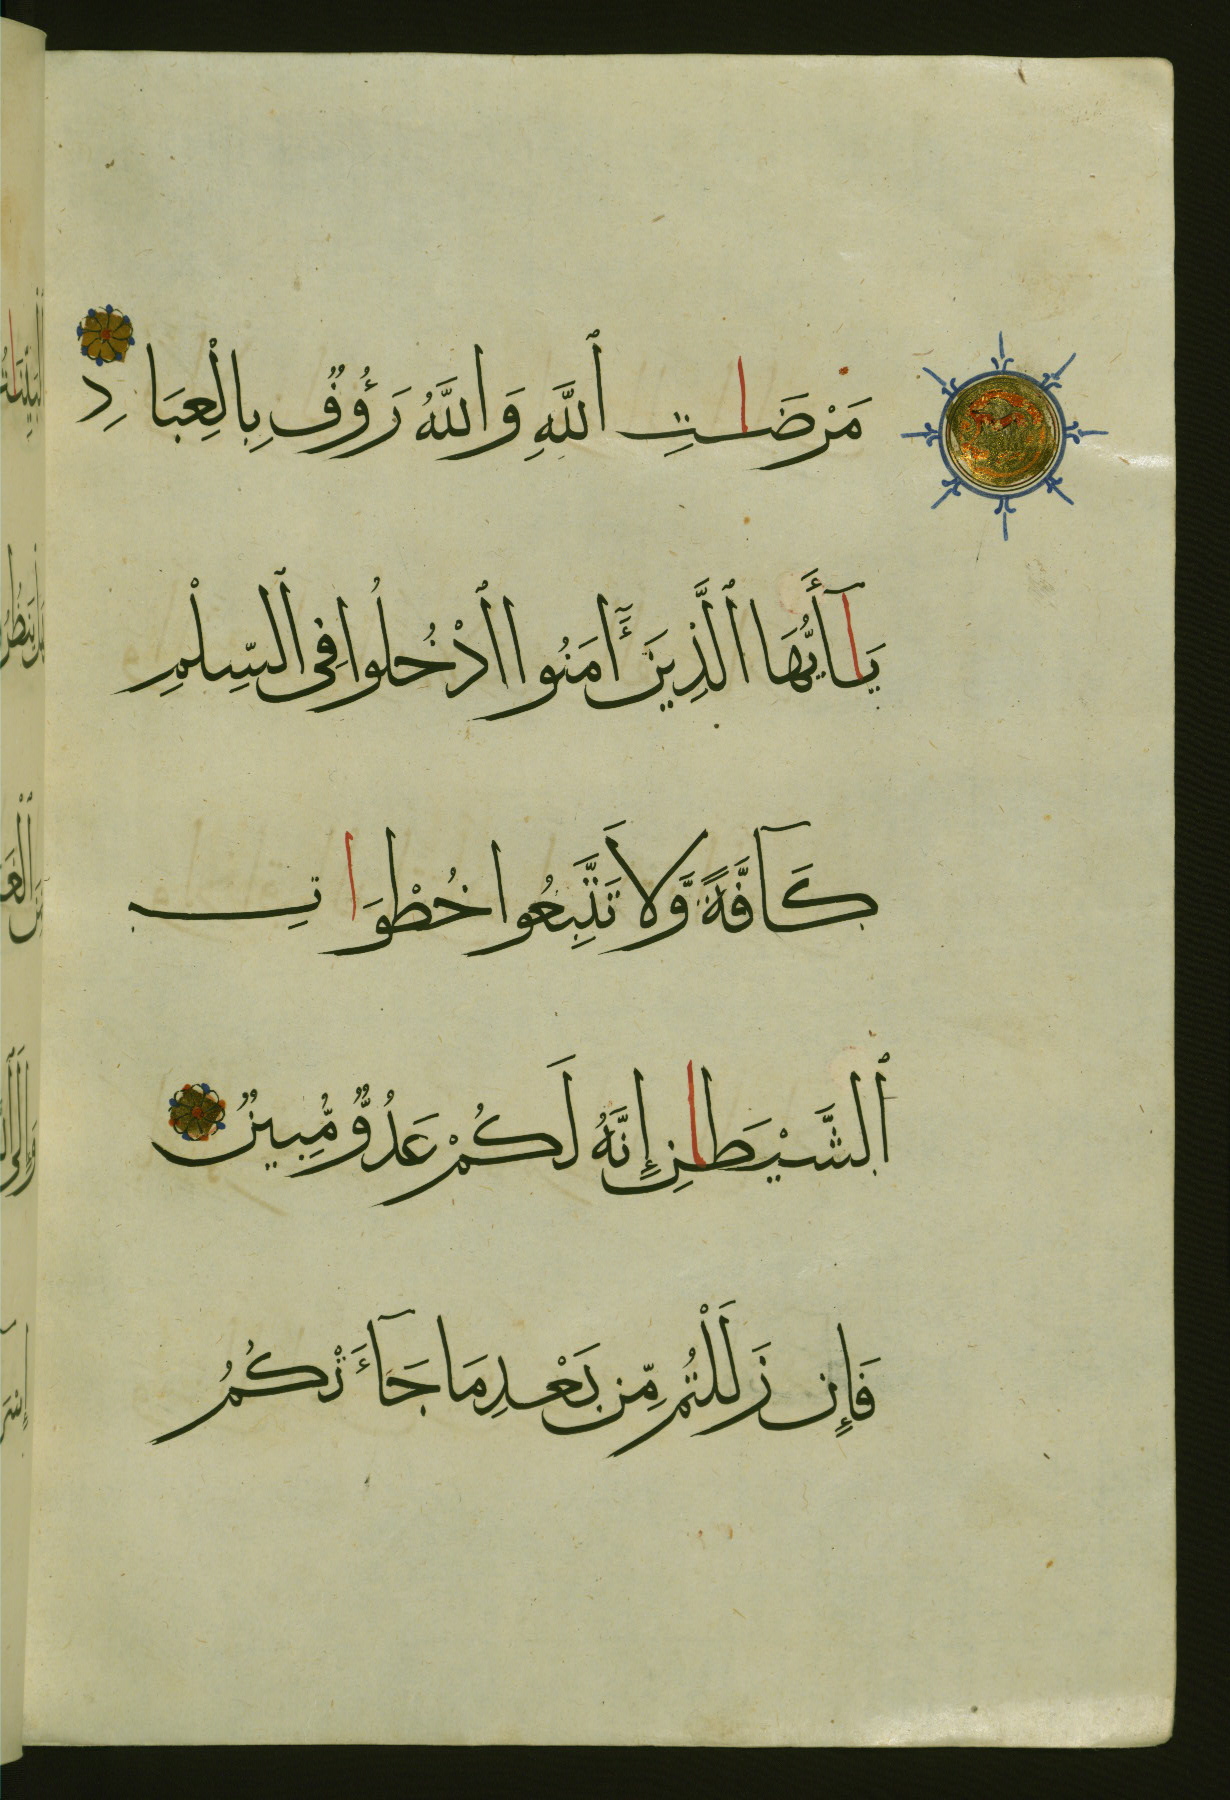 مَرْضَاتِ ٱللَّهِ وَاللَّهُ رَؤُوفٌ بِالْعِبَادِ
يَآأَيُّهَا ٱلَّذِينَ ءَامَنُوا ٱدْخُلُوا فِى ٱلسِّلْمِ
كَآفَّةً وَّلَا تَتَّبِعُوا خُطْوَاتِ
ٱلشَّيْطَانِ إِنَّهُ لَكُمْ عَدُوٌّ مُّبِينٌ
فَإِن زَلَلْتُم مِّن بَعْدِ مَا جَآءَتْكُمُ